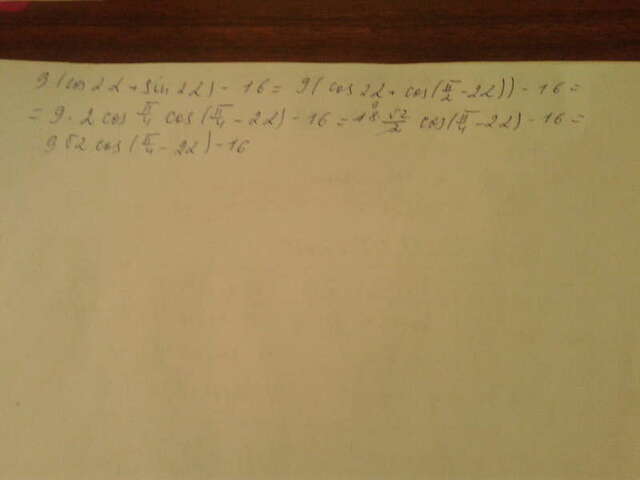 9(cos2α+sin2α)-16=9(cos2α+cos(π/2-2α))-16=
=9·2cos π/4 cos(π/4-2α)-16=18 9 √2/2 cos(π/4-2α)-16=
9√2cos(π/4-2α)-16